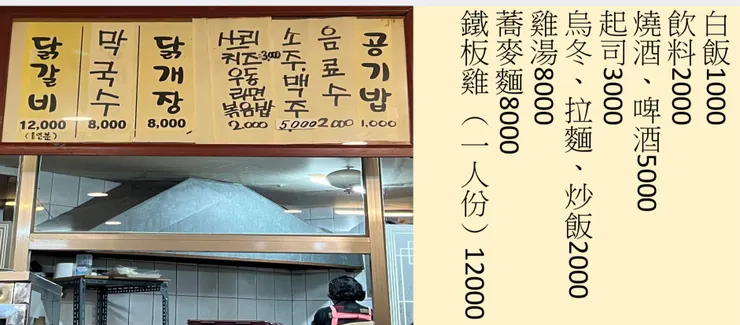 닭갈비
12,000
(1인분)
막국수
8,000
닭개장
8,000
사리
치즈3,000
우동
라면
볶음밥
2,000
소주
맥주
5,000
음료수
2,000
공기밥
1,000
白飯1000
飲料2000
燒酒、啤酒5000
起司3000
烏冬、拉麵、炒飯2000
雞湯8000
蕎麥麵8000
鐵板雞（一人份）12000